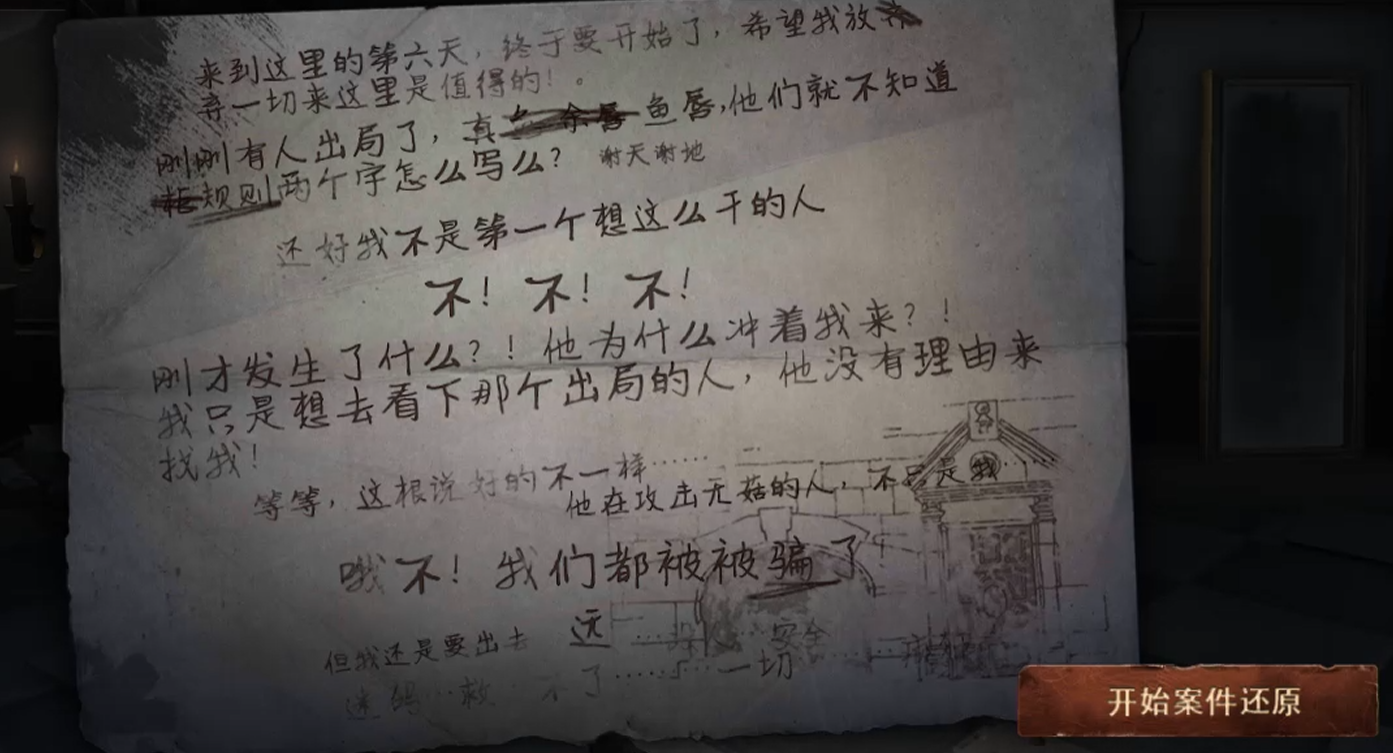 来到这里的第六天，终于要开始了，希望我放
弃一切来这里是值得的！。
刚刚有人出局了，真 鱼唇,他们就不知道
规则两个字怎么写么？ 谢天谢地
还好我不是第一个想这么干的人
不！不！不！
刚才发生了什么？！他为什么冲着我来？！
我只是想去看下那个出局的人，他没有理由来
找我！
等等，这根说好的不一样……
他在攻击无菇的人，不只是我…
哦不！我们都被被骗了
但我还是要出去 远 …… 安全
救 不了……一切
开始案件还原